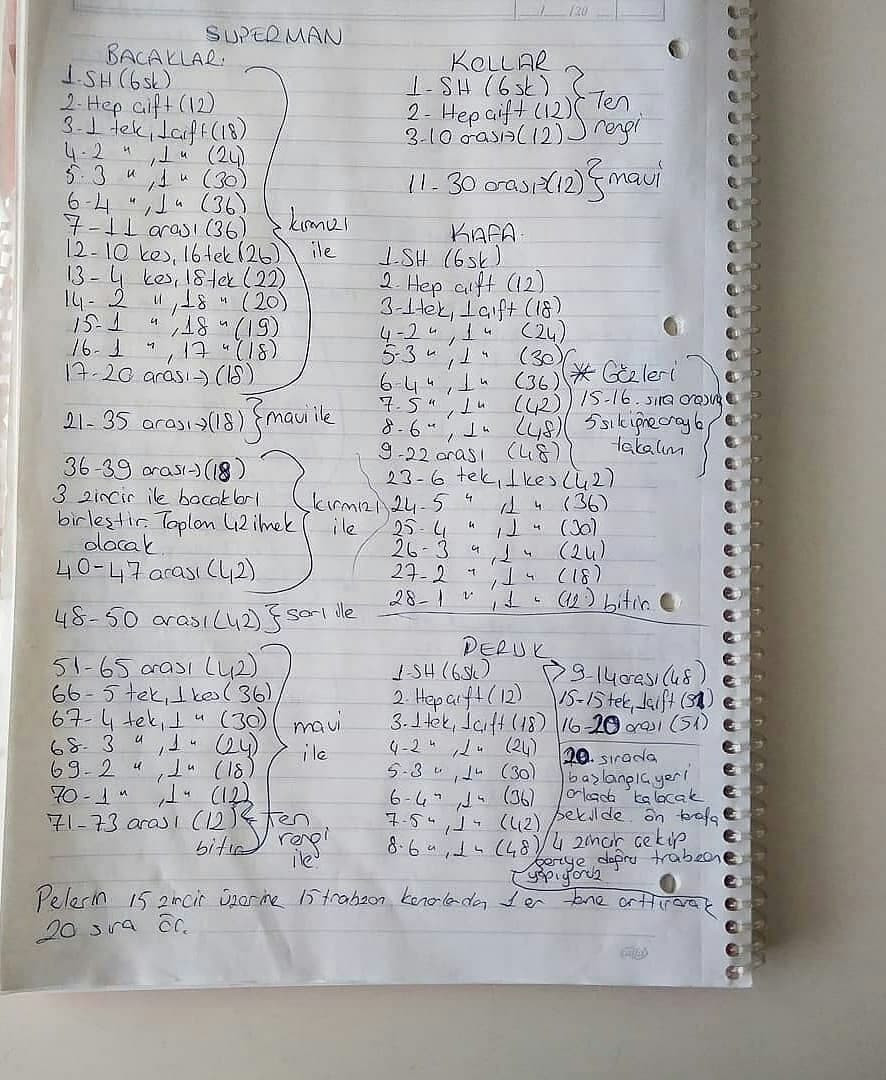 SUPERMAN
BACAKLAR.
1-SH (6sk)
2-Hep çift (12)
3-1 tek, 1çift (18)
4-2 " , 1 " (24)
5-3 " , 1 " (30)
6-4 " , 1 " (36)
7-11 arası (36)
12-10 kes, 16 tek (26)
13-4 kes, 18 tek (22)
14-2 " , 18 " (20)
15-1 " , 18 " (19)
16-1 " , 17 " (18)
17-20 arası→(18)
kırmızı
ile
21-35 arası→(18) } mavi ile
36-39 arası→(18)
3 zincir ile bacakları
birleştir. Toplam 42 ilmek
olacak
40-47 arası (42)
kırmızı
ile
48-50 arası (42) } sarı ile
51-65 arası (42)
66-5 tek, 1 kes (36)
67-4 tek, 1 " (30)
68-3 " , 1 " (24)
69-2 " , 1 " (18)
70-1 " , 1 " (12)
mavi
ile
71-73 arası (12)
bitir
Ten
rengi
ile
KOLLAR
1-SH (6sk)
2-Hep çift (12)
3-10 arası→(12)
Ten
rengi
11-30 arası→(12) } mavi
KAFA
1-SH (6sk)
2-Hep çift (12)
3-1tek, 1çift (18)
4-2 " , 1 " (24)
5-3 " , 1 " (30)
6-4 " , 1 " (36)
7-5 " , 1 " (42)
8-6 " , 1 " (48)
9-22 arası (48)
23-6 tek, 1 kes (42)
24-5 " , 1 " (36)
25-4 " , 1 " (30)
26-3 " , 1 " (24)
27-2 " , 1 " (18)
28-1 " , 1 " (12) bitir.
* Gözleri
15-16. sıra arasına
5 sık iğne arayla
takalım
PERUK
1-SH (6sk)
2-Hep çift (12)
3-1tek, 1çift (18)
4-2 " , 1 " (24)
5-3 " , 1 " (30)
6-4 " , 1 " (36)
7-5 " , 1 " (42)
8-6 " , 1 " (48)
9-14 arası (48)
15-15 tek, 1çift (51)
16-20 arası (51)
20. sırada
başlangıç yeri
ortada kalacak
şekilde ön tarafa
4 zincir çekip
geriye doğru trabzan
yapıyoruz
Pelerin 15 zincir üzerine 15 trabzan kenarlardan 1 er tane arttırarak
20 sıra ör.